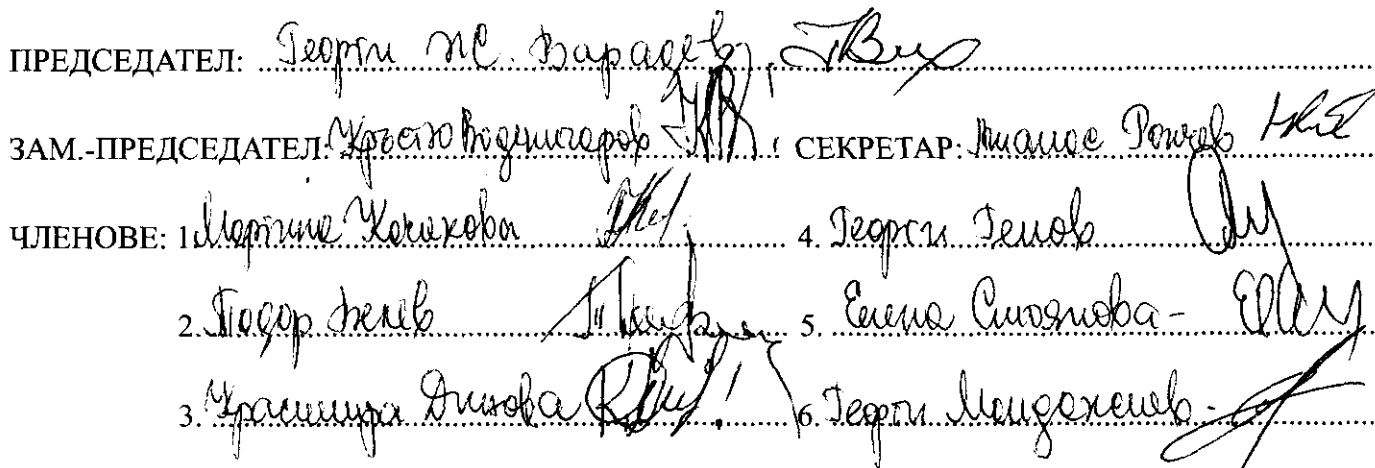 ПРЕДСЕДАТЕЛ: Георги Ж. Варадев
ЗАМ.-ПРЕДСЕДАТЕЛ: Кръстю Воденичаров СЕКРЕТАР: Атанас Рончев
ЧЛЕНОВЕ: 1. Мартина Кочакова 4. Георги Генов
2. Тодор Бенев 5. Елена Стоянова -
3. Красимира Динова 6. Георги Манджиев -